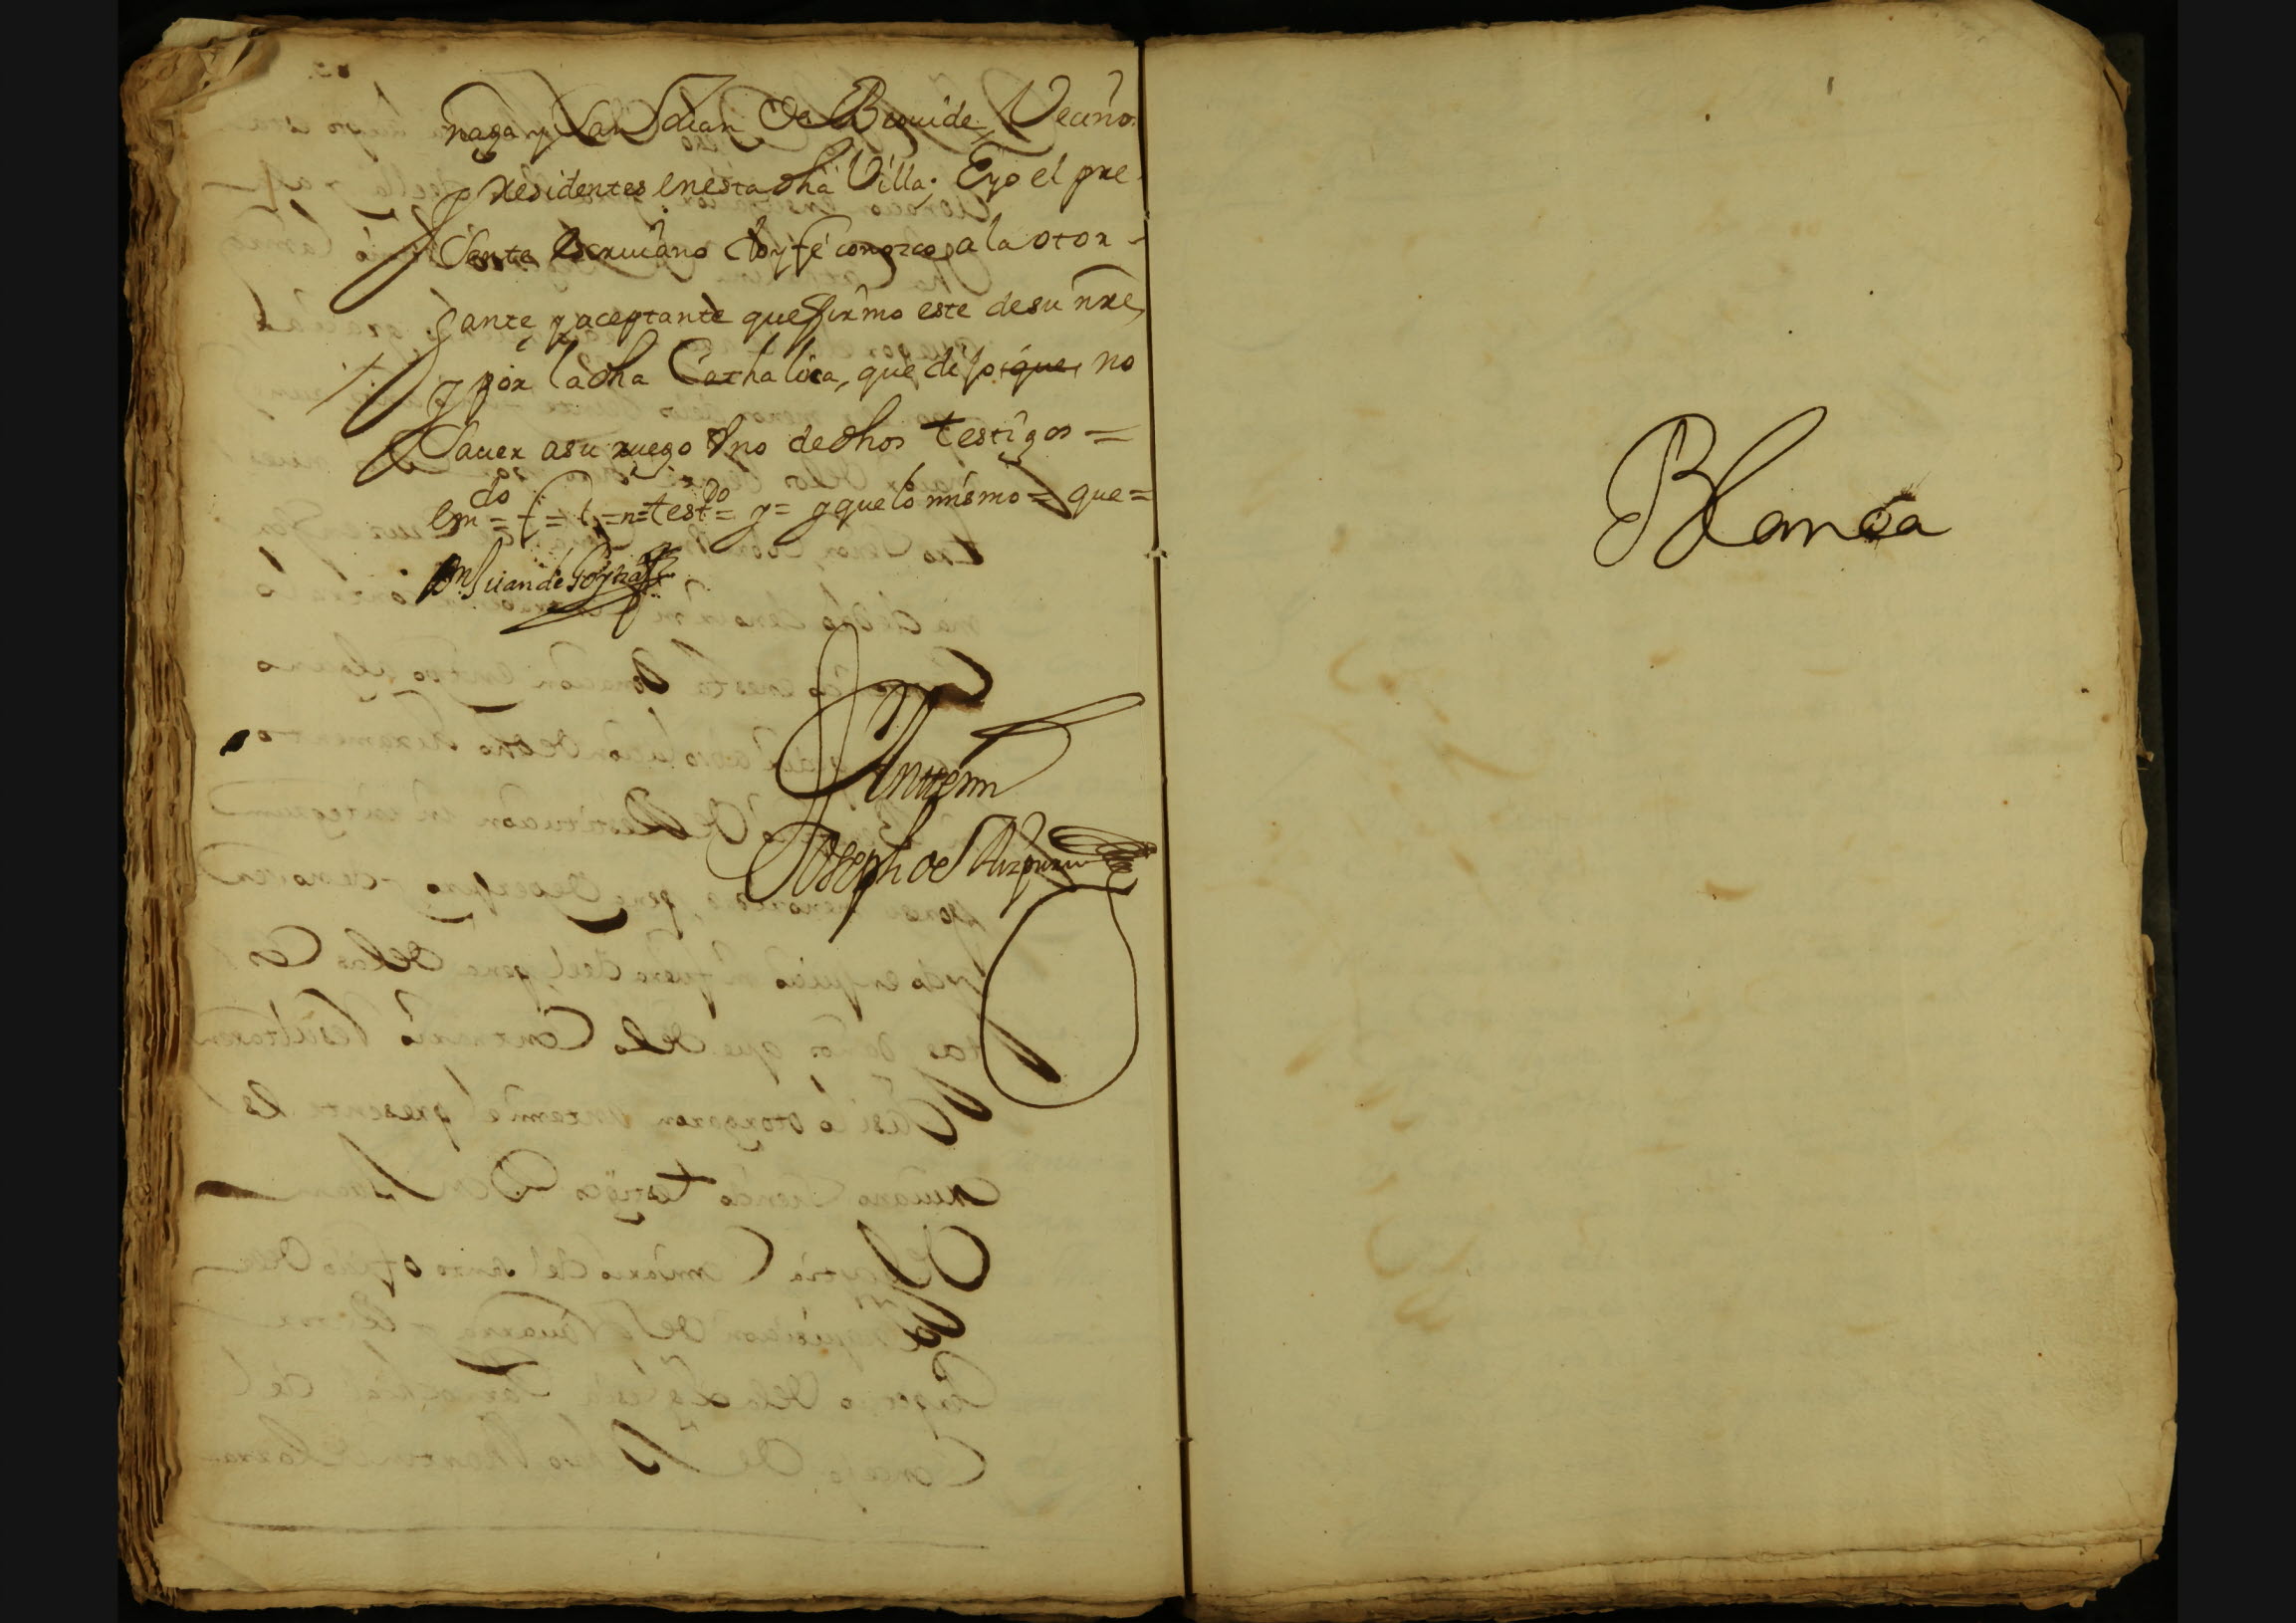 naga y San Juan de Beouide Vecino
y residentes en esta dha Villa. E yo el pre-
sente escriuano doy fé conozco a la otor-
gante y aceptante que firmo este de su nre,
y por la dha Cathalina, que dijo que no
Sauer a su ruego Vno de dhos testigos =
emdo = f = l = n = testdo = y = y que lo mismo = que =
Dn Juan de Goytia
Anttemi
Joseph de Aizpurua
Blanca